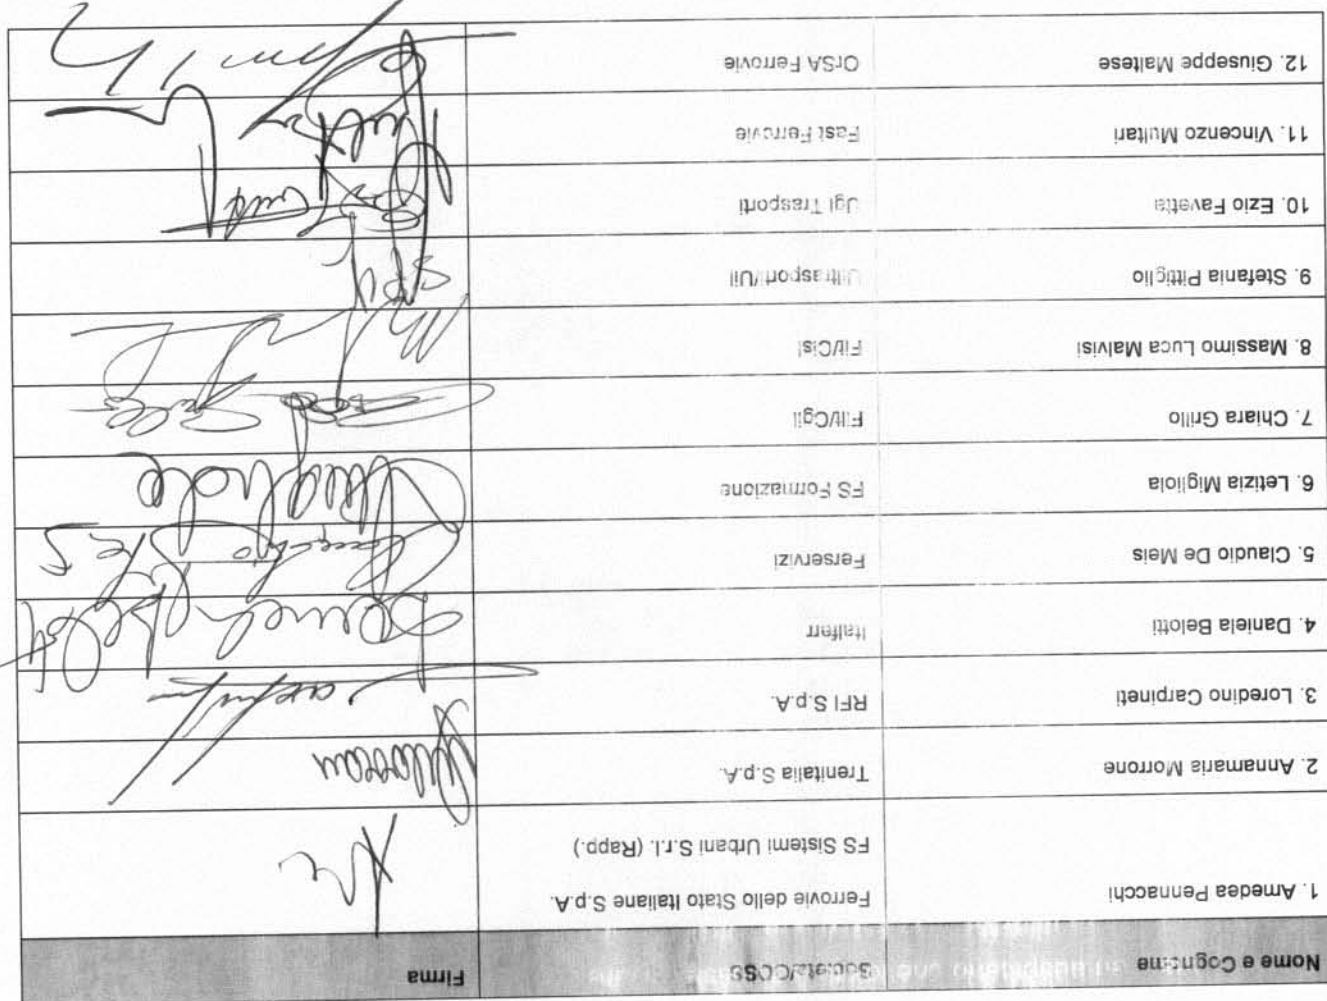 Nome e Cognome Società/OOSS Firma
1. Amedea Pennacchi Ferrovie dello Stato Italiane S.p.A.
FS Sistemi Urbani S.r.l. (Rapp.)
2. Annamaria Morrone Trenitalia S.p.A.
3. Loredino Carpineti RFI S.p.A.
4. Daniela Belotti Italferr
5. Claudio De Meis Ferservizi
6. Letizia Migliola FS Formazione
7. Chiara Grillo Filt/Cgil
8. Massimo Luca Malvisi Fit/Cisl
9. Stefania Pittiglio Uiltrasporti/Uil
10. Ezio Favetta Ugl Trasporti
11. Vincenzo Multari Fast Ferrovie
12. Giuseppe Maltese OrSA Ferrovie